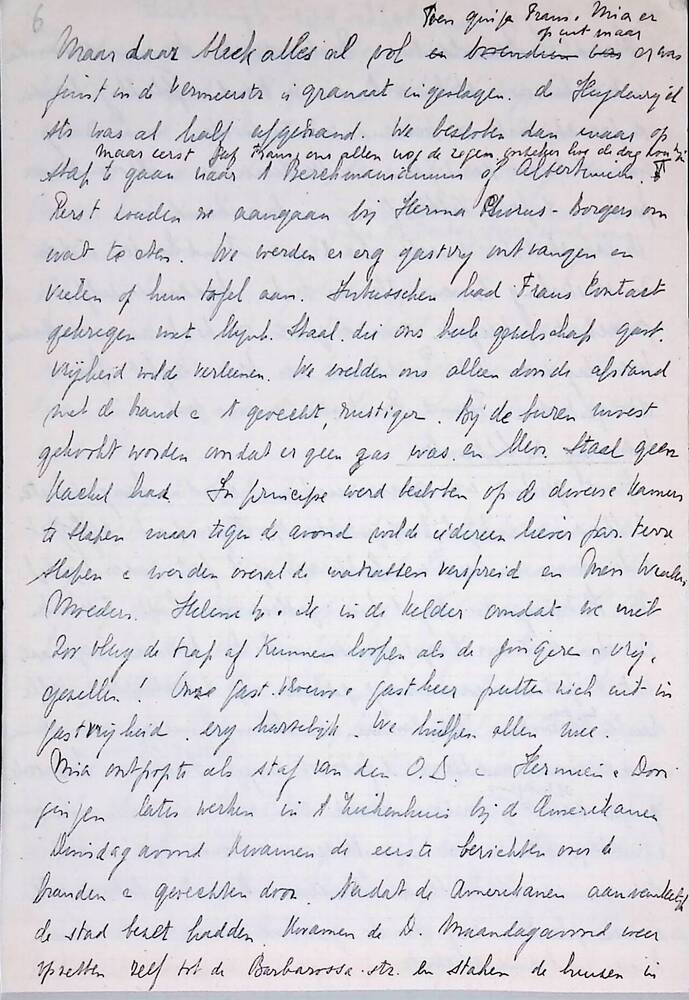 6
Toen ging Frans, Mia er
op uit maar
Maar daar bleek alles al vol en er was
juist in de Vermeerstr 'n granaat ingeslagen. de
str was al half afgebrand. We besloten dan maar op
maar eerst gaf Frans ons allen nog de zegen
stap te gaan naar 't Berchmanianum of Albertinum.
Eerst zouden we aangaan bij Herma - Borgers om
wat te eten. We werden er erg gastvrij ontvangen en
vielen op hun tafel aan. Intusschen had Frans Contact
gekregen met Mynh. Staal. die ons heele gezelschap gast.
vrijheid wilde verleenen. We voelden ons alleen door de afstand
met de brand & 't gevecht, rustiger. Bij de buren moest
gekookt worden omdat er geen gas was en Mevr. Staal geen
Kachel had. In principe werd besloten op de diverse Kamers
te slapen maar tegen de avond wilde iedereen liever par terre
slapen & werden overal de matrassen verspreid en Mevr
Moeders. Helene & ik in de Kelder omdat we niet
zoo vlug de trap af Kunnen loopen als de jongeren & vrij.
gezellen! Onze Gast.vrouw & gastheer putten zich uit in
gastvrijheid. erg hartelijk. We hielpen allen mee.
Mia ontpopte als staf van den O.D. & Hermien & Dori
gingen later werken in 't Ziekenhuis bij de Amerikanen
Dinsdagavond Kwamen de eerste berichten over de
branden & gevechten door. Nadat de Amerikanen aanvankelijk
de stad bezet hadden. Kwamen de D. Maandagavond weer
opzetten zelf tot de Barbarossa-str. en staken de huizen in